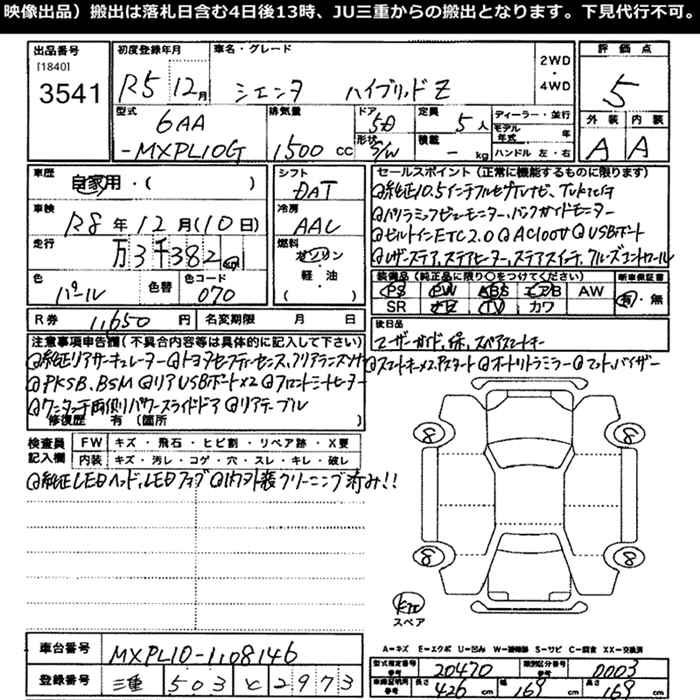 映像出品）搬出は落札日含む4日後13時、JU三重からの搬出となります。下見代行不可。
出品番号 初度登録年月 車名・グレード 2WD・4WD 評価点
[1840]
3541 R5 12月 シエンタ ハイブリッドZ 5
型式 排気量 ドア 5D 定員 5人 ディーラー・並行 外装 内装
6AA モデル年式 年 A A
-MXPL10G 1500cc 形状 S/W 積載 - kg ハンドル 左・右
車歴 シフト セールスポイント（正常に機能するものに限ります）
自家用・( ) DAT @純正10.5インチフルセグTVナビ、
車検 冷房 @パノラミックビューモニター、バックガイドモニター
R8年12月(10日) AAC @ビルトインETC2.0 @AC100V @USBポート
走行 燃料 @レザーステア、ステアヒーター、ステアスイッチ、クルーズコントロール
万3千382 km ガソリン 装備品（純正品に限り○をつけてください） 新車保証書
色 色替 色コード 軽・油 PS PW ABS エアB AW 有・無
パール 070 ( ) SR ナビ TV カワ
R券 11,650円 名変期限 月 日 後日品
ユーザーガイド、保、スペアスマートキー
注意事項申告欄（不具合内容等は具体的に記入して下さい） @スマートキー×2、Pスタート @オートリトラミラー @マット、バイザー
@純正リアサーキュレーター @トヨタセーフティーセンス、クリアランスソナー
@PKSB、BSM @リアUSBポート×2 @フロントシートヒーター
@ワンタッチ両側パワースライドドア @リアテーブル
修復歴 有（箇所
検査員 FW キズ・飛石・ヒビ割・リペア跡・X要
記入欄 内装 キズ・汚レ・コゲ・穴・スレ・キレ・破レ
@純正LEDヘッド、LEDフォグ @内外装クリーニング済み!!
8 8
8 8
スペア
車台番号 MXPL10-1108146
A=キズ E=エクボ U=凹み W=補修跡 S=サビ C=腐食 XX=交換済
登録番号 三重 503 と 2973
型式指定番号 参考 20470 類別区分番号 参考 0003
車検証明用 参考 長さ 426cm 幅 169cm 高さ 169cm